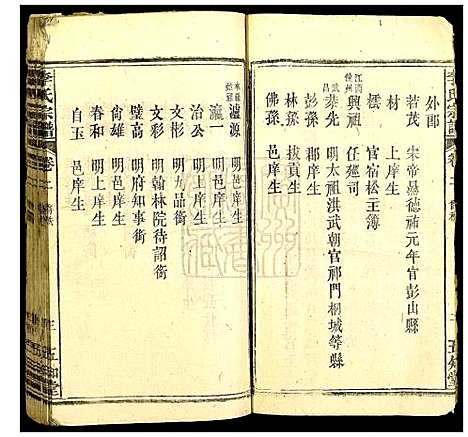 李氏宗譜
卷二
外郎
若茂 宋帝㬎德祐元年官彭山縣
上材 上庠生
櫺 官宿松主簿
興祖 任廵司
秦先 明太祖洪武朝官祁門桐城等縣
武昌
彭孫 郡庠生
林孫 拔貢生
佛孫 邑庠生
五知堂
李氏宗譜
卷之
瀘源 明邑庠生
瀛一 明邑庠生
治公 明上庠生
文彬 明九品銜
文彩 明翰林院待詔銜
璧高 明府知事銜
春和 明上庠生
自玉 邑庠生
五知堂